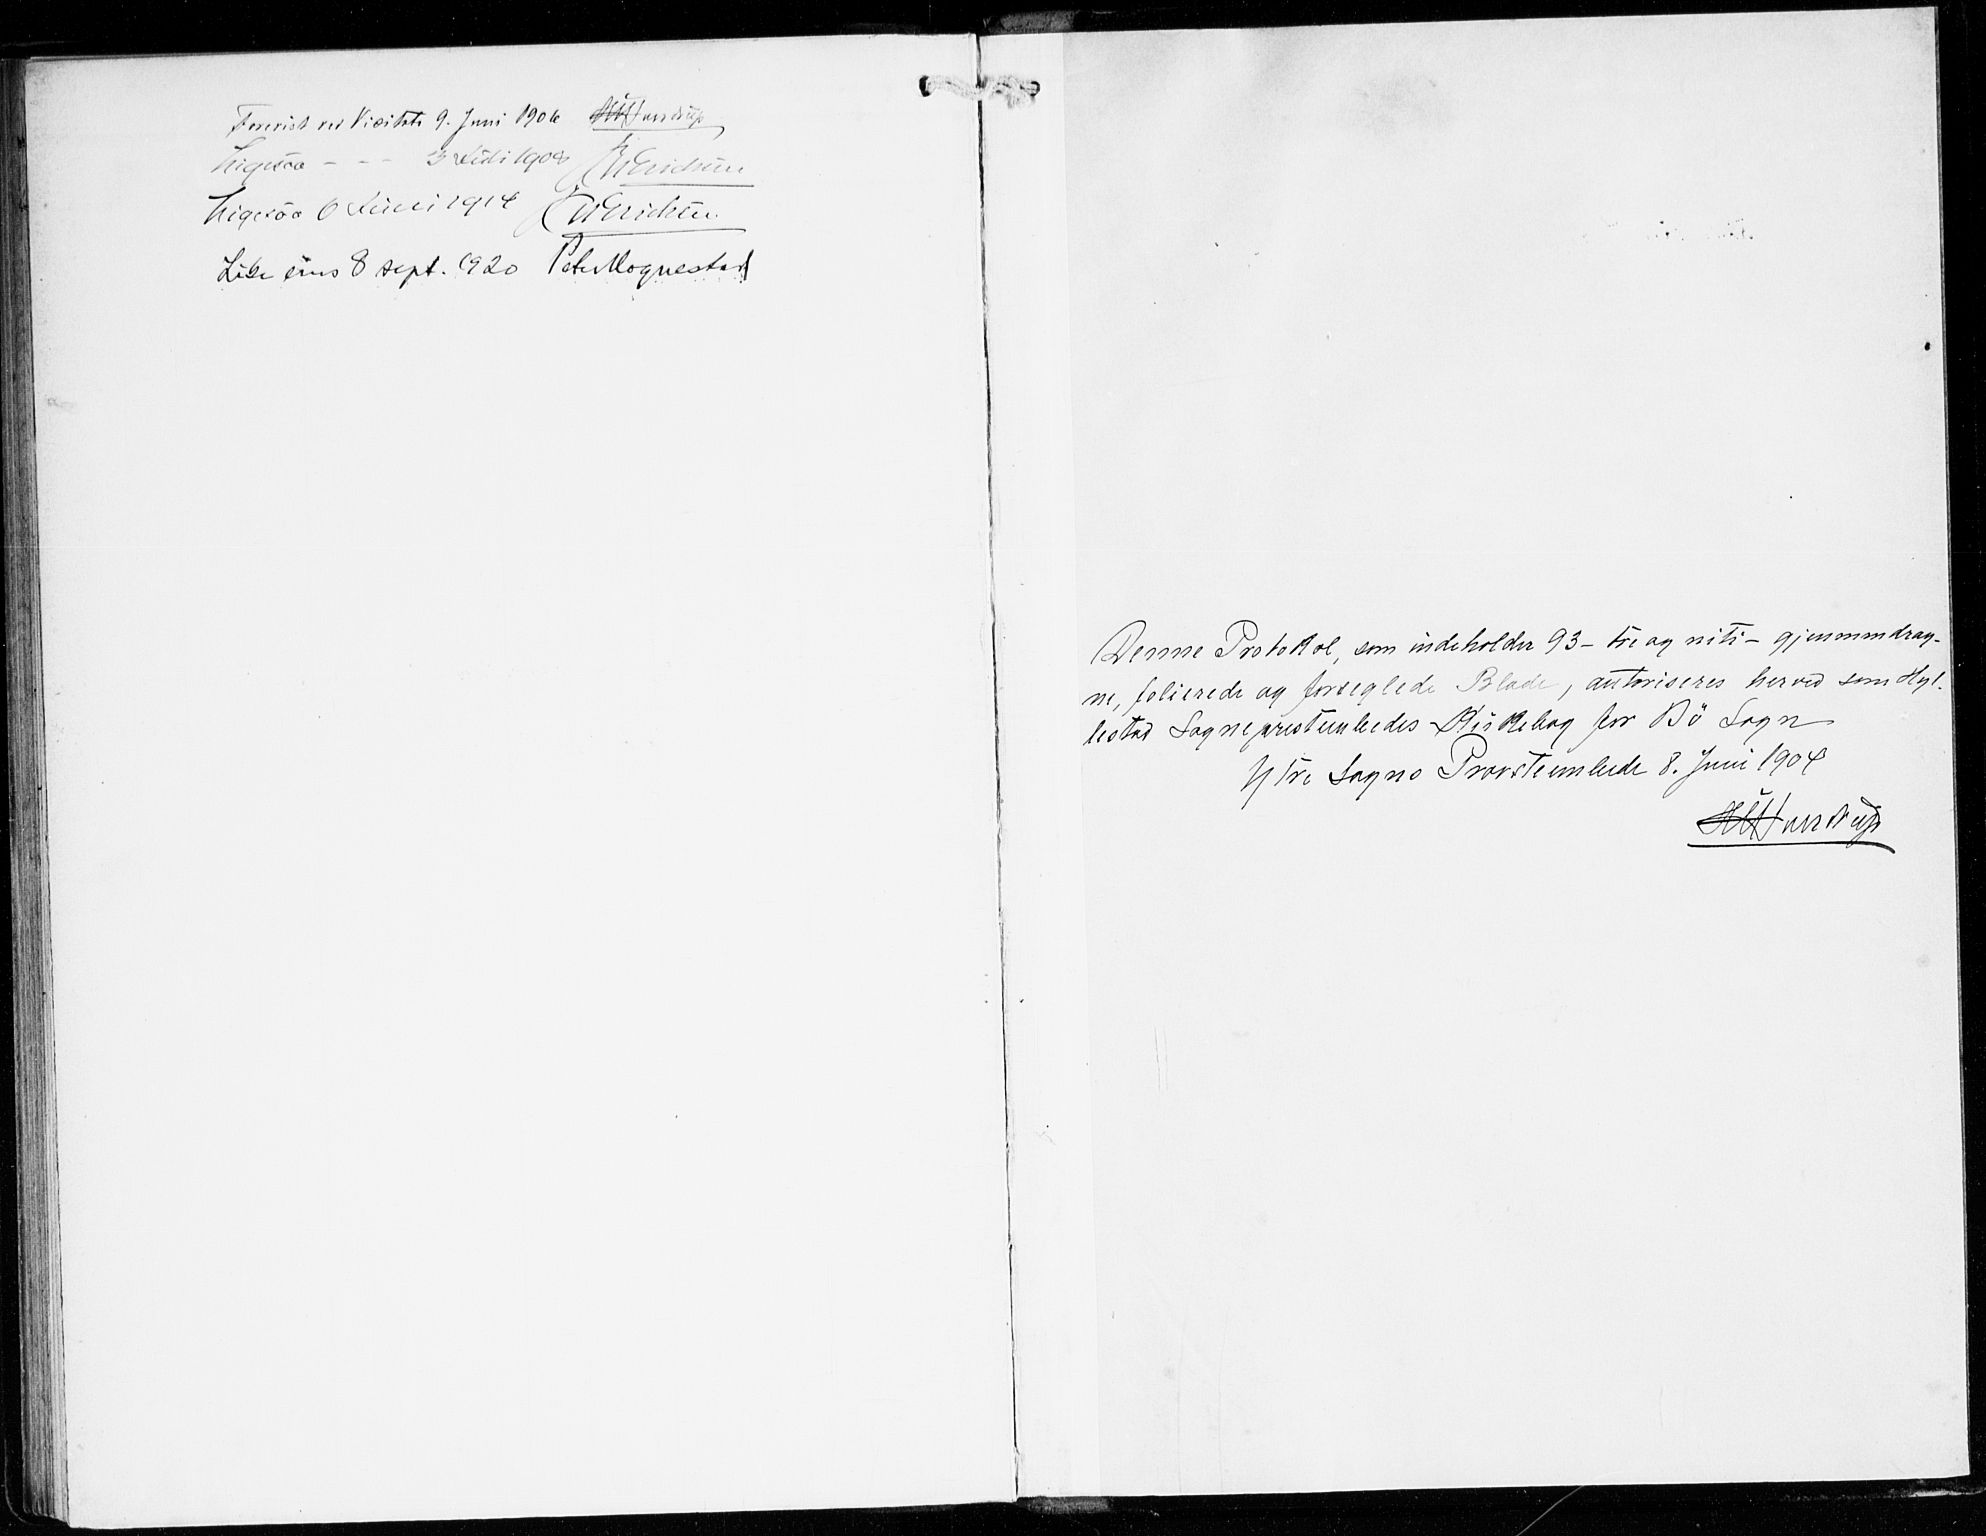 Forevist ved Visitats 9. Juni 1906
Ligesaa - - - 3 Juli 1908 Erichsen
Ligesaa 6 Juni 1914 Erichsen
Like eins 8 sept. 1920 Peter Mognestad
Denne Protokol, som indeholder 93 - tre og niti - gjennemdrag-
ne, folierede og forseglede Blade, autoriseres herved som Hyl-
lestad Sogneprestembedes Kirkebog for Bö Sogn
Ytre Sogns Provsteembede 8. Juni 1904